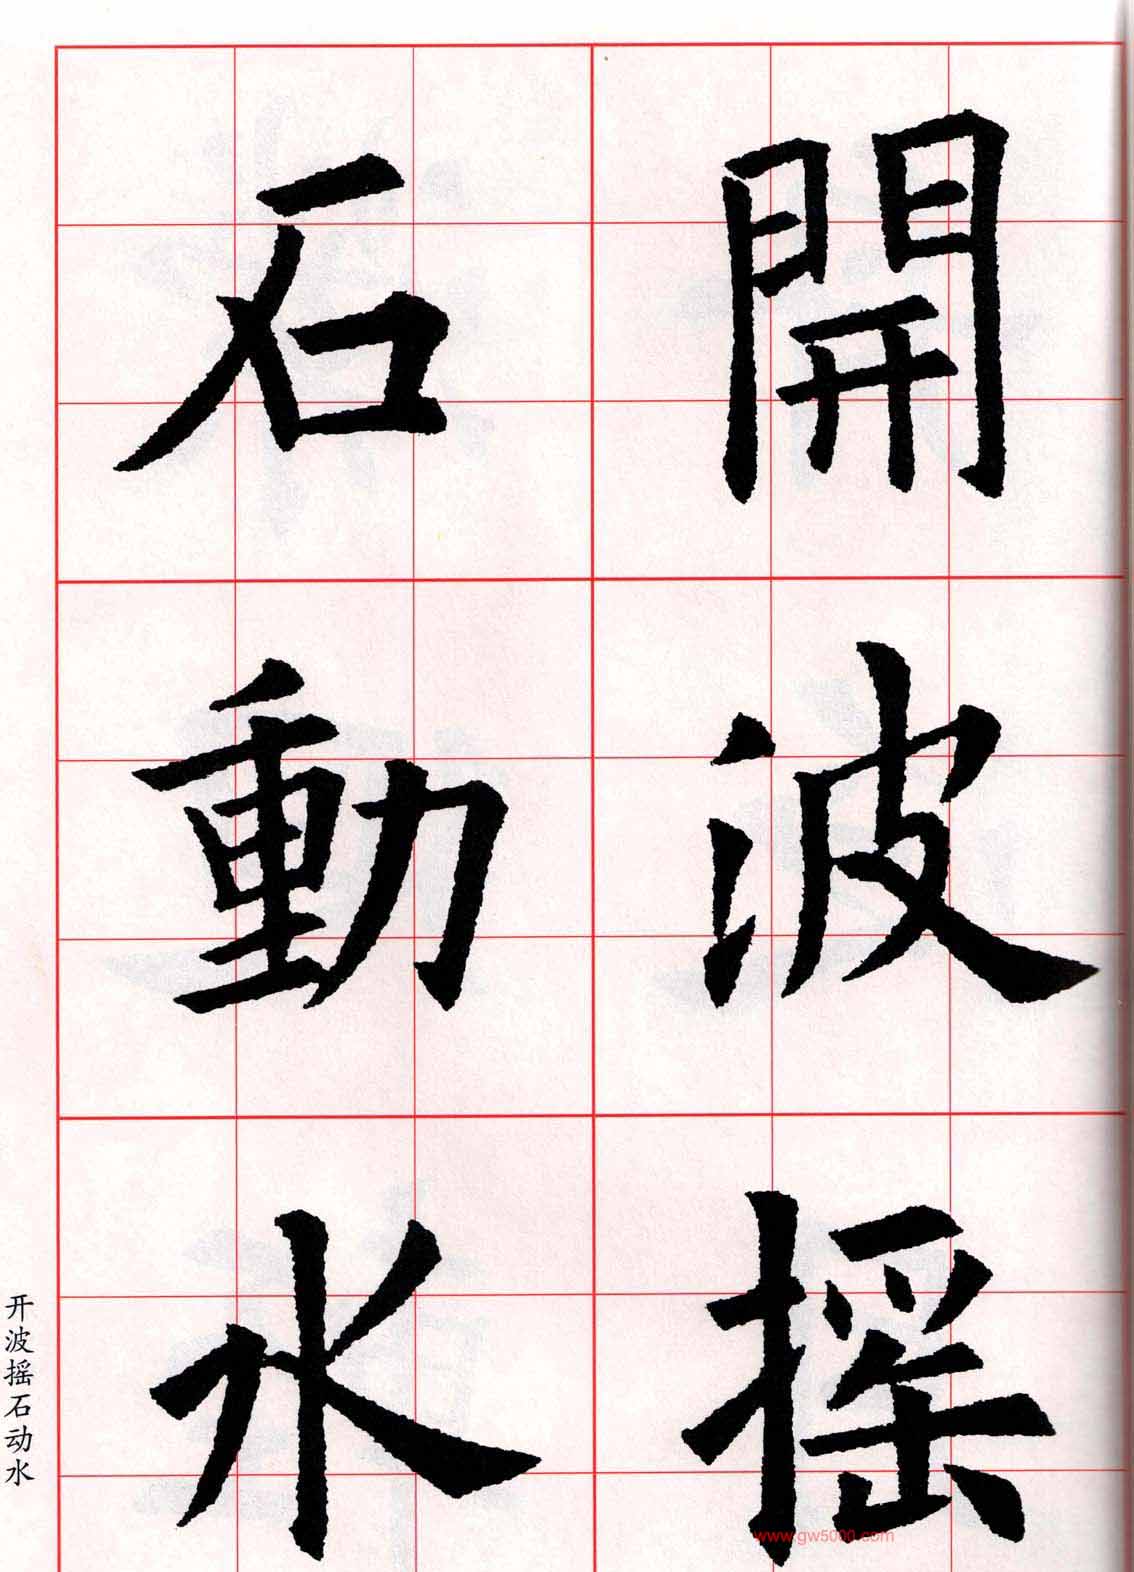 開波摇
石動水
开波摇石动水
www.gw5000.com